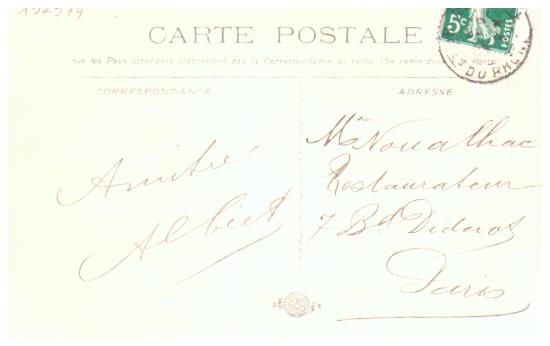 132514
CARTE POSTALE
Tous les Pays étrangers n'acceptent pas la Correspondance au recto. (Se renseigner
CORRESPONDANCE
ADRESSE
5c
POSTES
DU RHÔNE
Amitié
Albiet
Mr Noualhac
Restaurateur
7 Bd Diderot
Paris